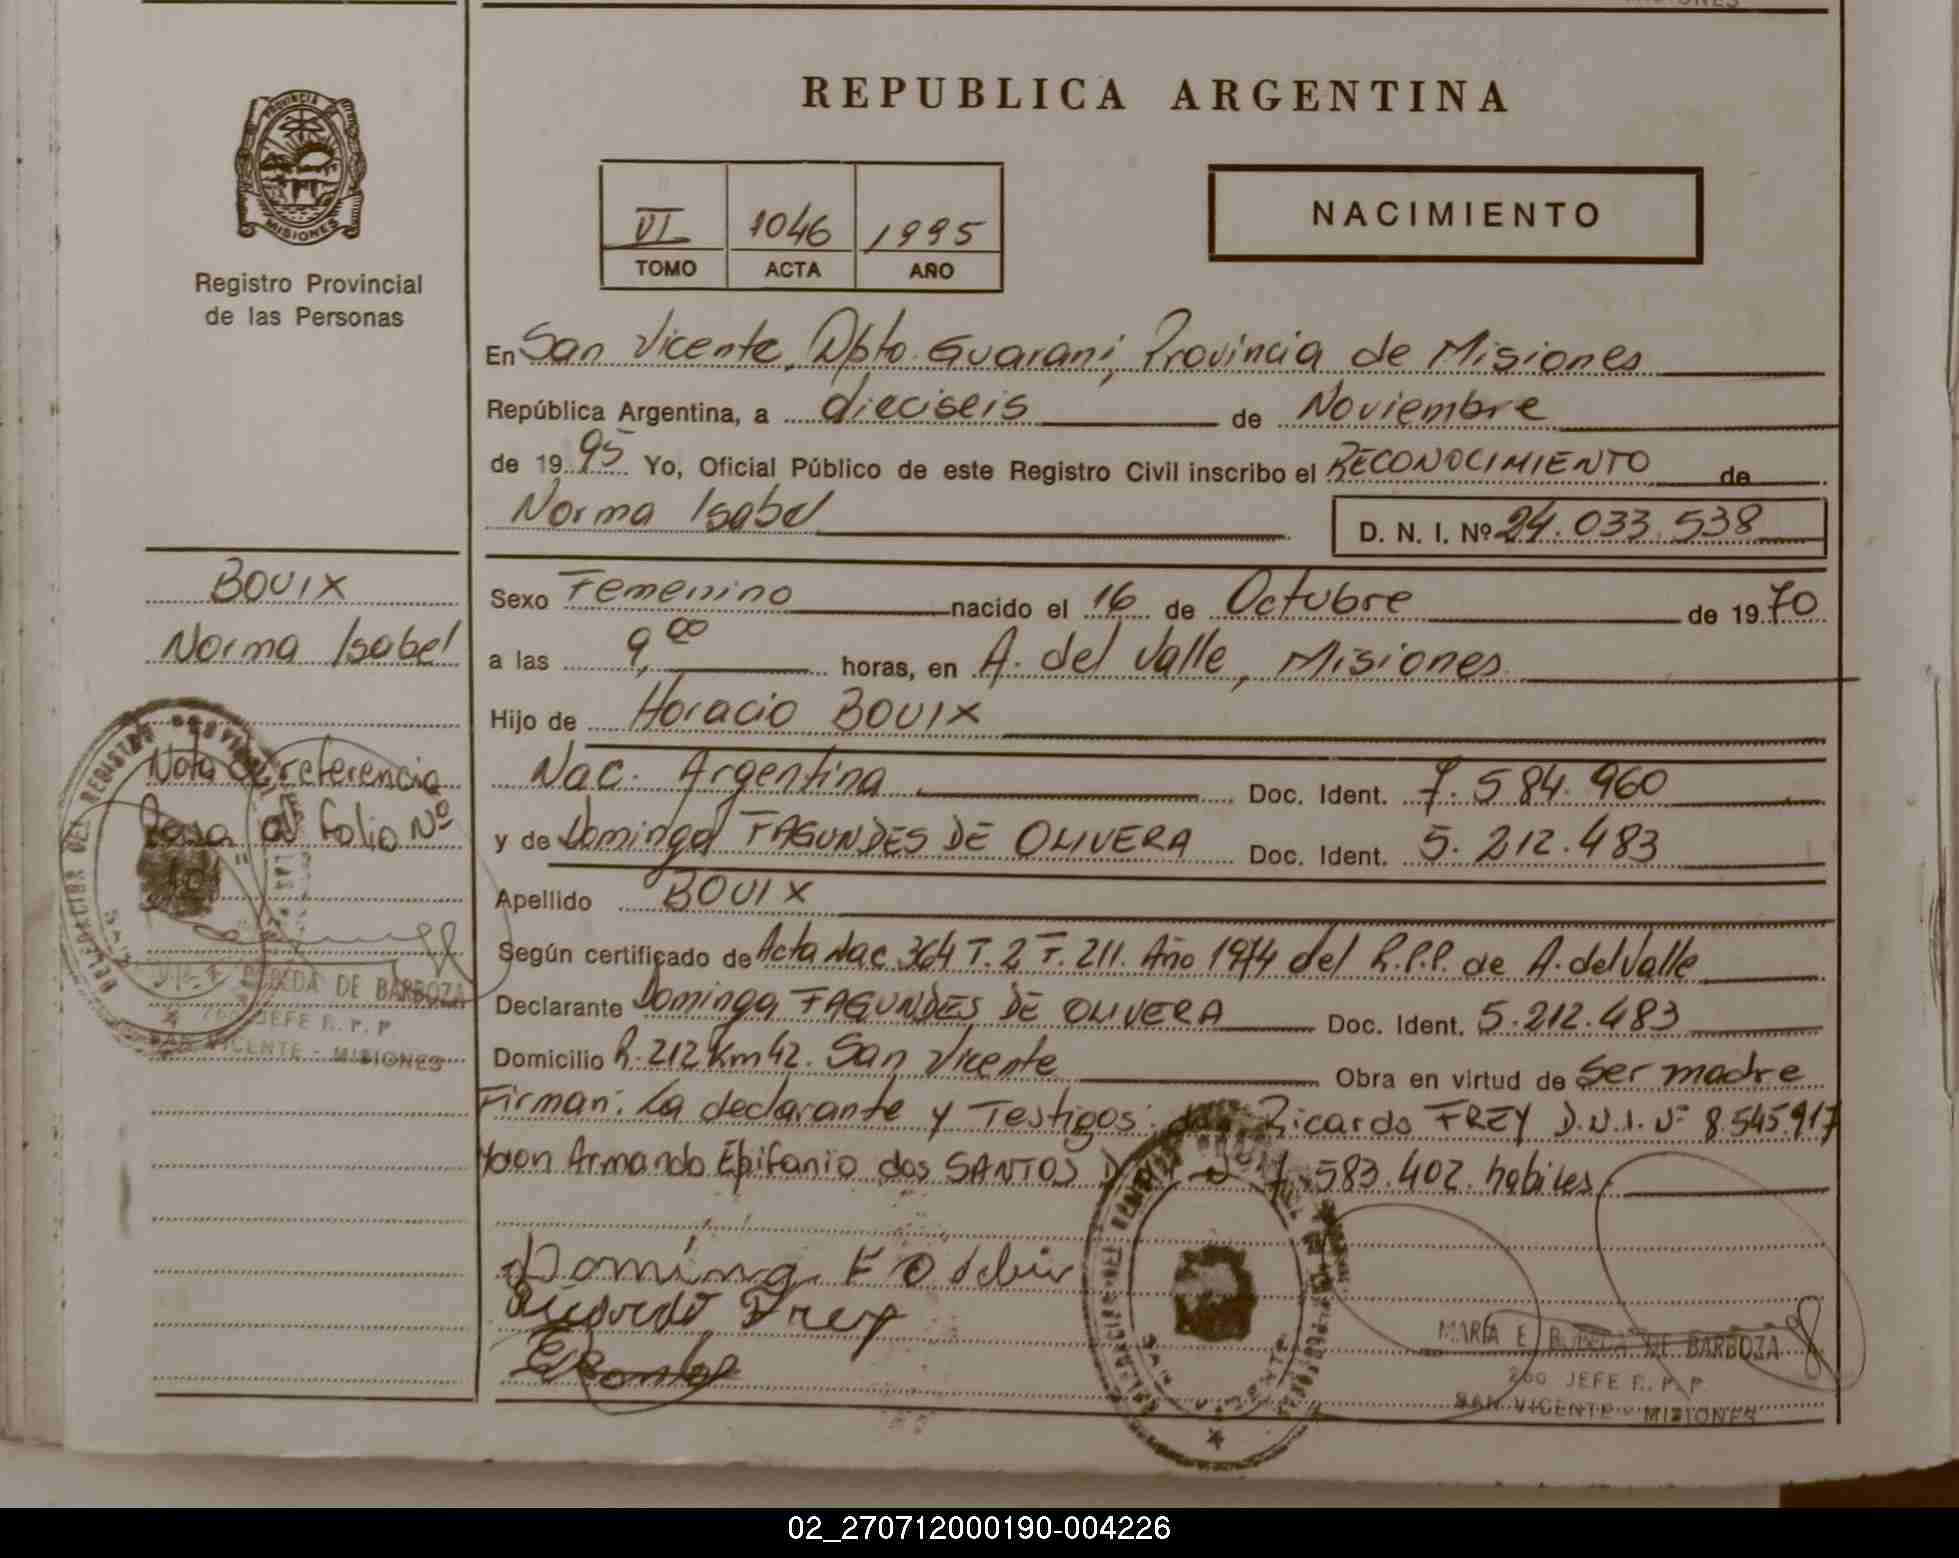 REPUBLICA ARGENTINA
PROVINCIA
MISIONES
Registro Provincial
de las Personas
VI 1046 1995
TOMO ACTA AÑO
NACIMIENTO
En San Vicente, Dpto. Guarani, Provincia de Misiones
República Argentina, a dieciseis de Noviembre
de 1995 Yo, Oficial Público de este Registro Civil inscribo el RECONOCIMIENTO de
Norma Isabel D. N. I. Nº 24.033.538
BOUIX
Norma Isabel
Nota de referencia
Pasa al folio Nº
DE BARBOZA
JEFE R. P. P.
SAN VICENTE - MISIONES
Sexo Femenino nacido el 16 de Octubre de 1970
a las 9,00 horas, en A. del Valle, Misiones
Hijo de Horacio BOUIX
Nac. Argentina Doc. Ident. 7.584.960
y de Dominga FAGUNDES DE OLIVERA Doc. Ident. 5.212.483
Apellido BOUIX
Según certificado de Acta Nac 364 T. 2 F. 211. Año 1974 del R.P.P. de A. del Valle
Declarante Dominga FAGUNDES DE OLIVERA Doc. Ident. 5.212.483
Domicilio R. 212 Km 42. San Vicente Obra en virtud de ser madre
Firman: La declarante y Testigos: don Ricardo FREY D.N.I. Nº 8.545.917
y don Armando Epifanio dos SANTOS 7.583.402. habiles
Ricardo Frey
MARIA E DE BARBOZA
260 JEFE R. P. P.
SAN VICENTE - MISIONES
02_270712000190-004226